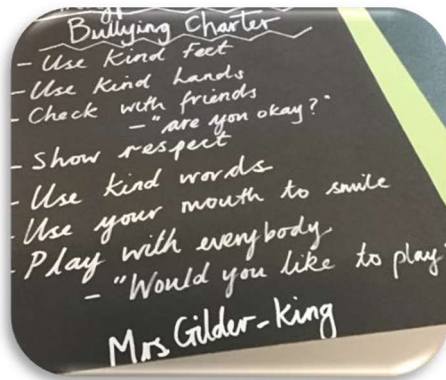 Bullying Charter
- Use Kind feet
- Use Kind hands
- Check with friends
- "are you okay?"
- Show respect
- Use kind words
- Use your mouth to smile
- Play with everybody
- "Would you like to play
Mrs Gilder-King